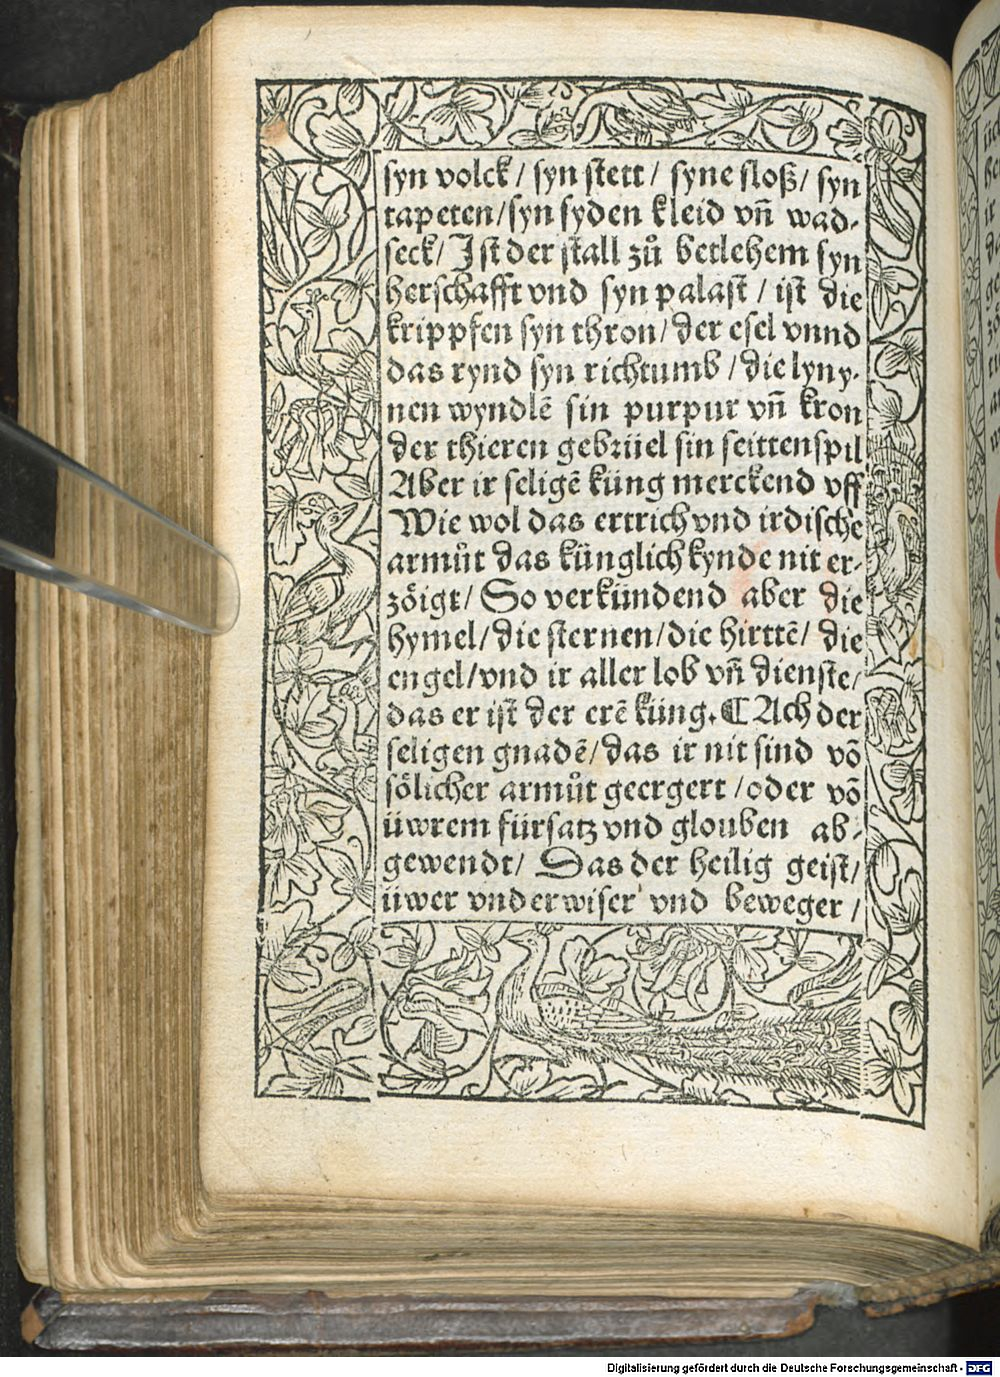 syn volck / syn stett / syne sloß / syn
tapeten / syn syden kleid vn̄ wad-
seck / Ist der stall zů betlehem syn
herschafft vnd syn palast / ist die
krippfen syn thron / der esel vnnd
das rynd syn richtumb / die lyny-
nen wyndlē sin purpur vn̄ kron
der thieren gebrüel sin seittenspil
Aber ir seligē küng merckend vff
Wie wol das ertrich vnd irdische
armůt das künglich kynde nit er-
zöigt / So verkündend aber die
hymel / die sternen / die hirttē / die
engel / vnd ir aller lob vn̄ dienste /
das er ist der erē küng. ¶ Ach der
seligen gnadē / das ir nit sind vō
sölicher armůt geergert / oder vō
üwrem fürsatz vnd glouben ab-
gewendt / Das der heilig geist /
üwer vnderwiser vnd beweger /
Digitalisierung gefördert durch die Deutsche Forschungsgemeinschaft - DFG